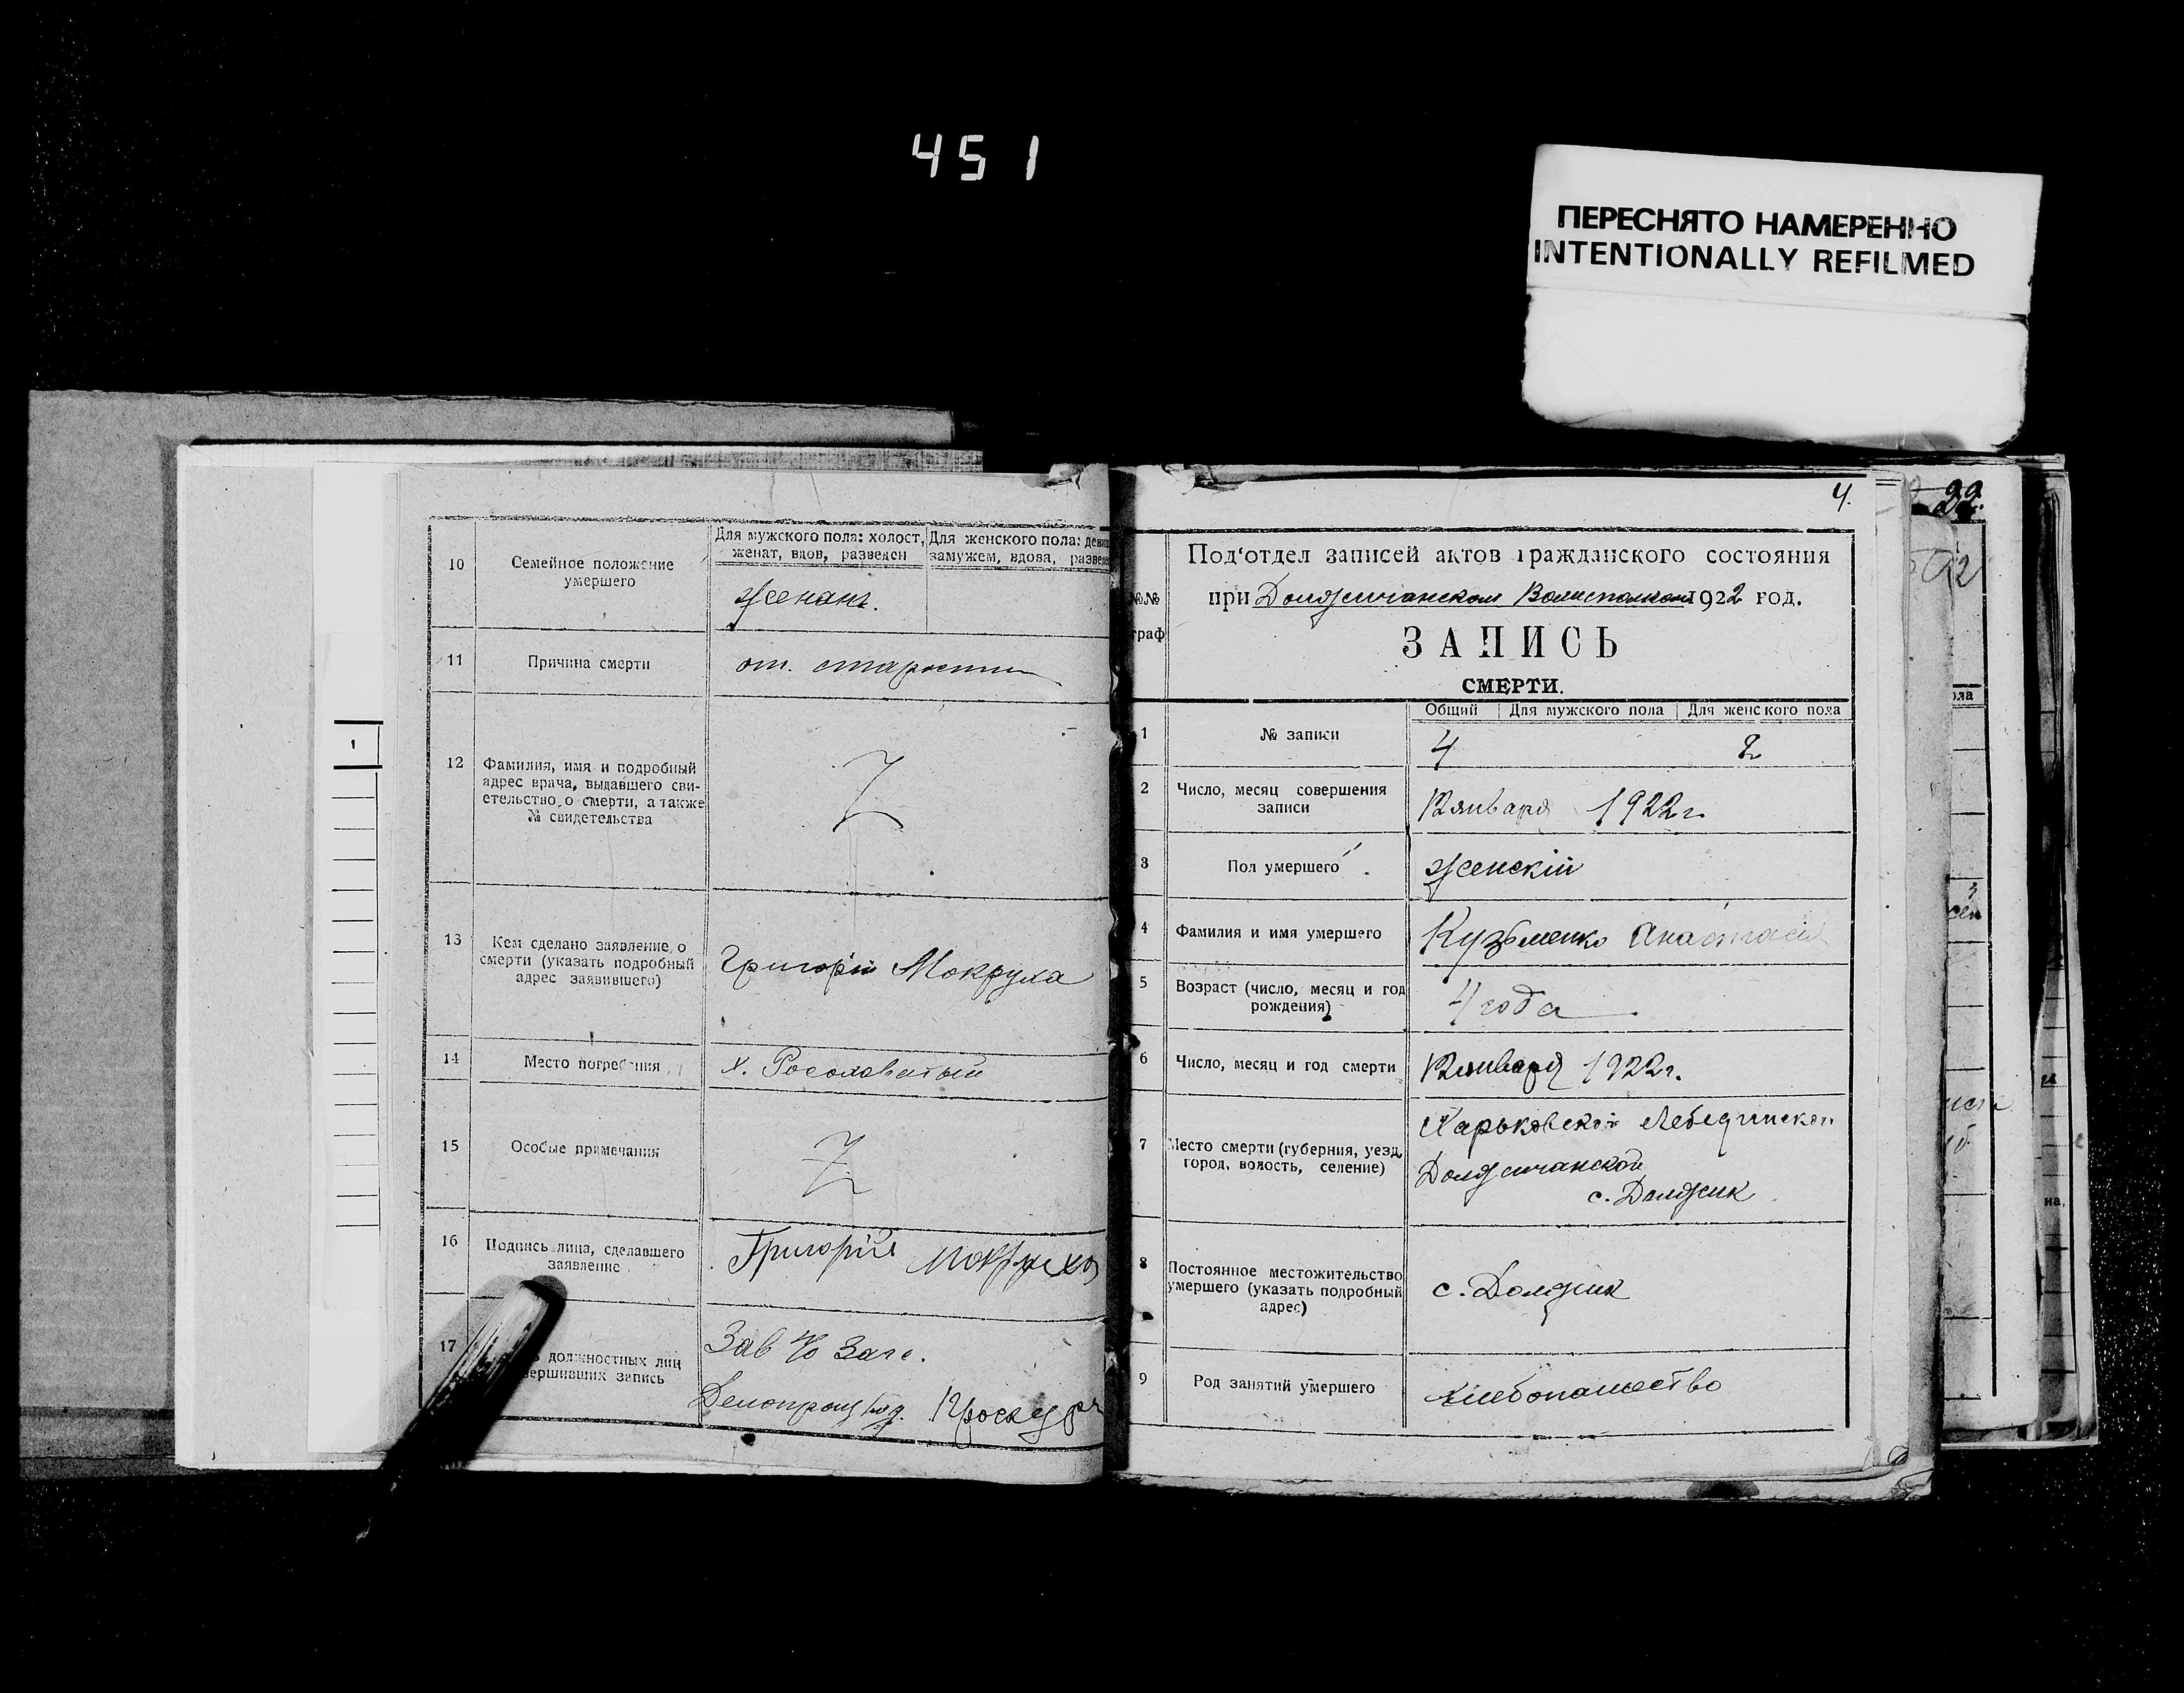 451
ПЕРЕСНЯТО НАМЕРЕННО
INTENTIONALLY REFILMED
10
Семейное положение
умершего
Для мужского пола: холост,
женат, вдов, разведен
Для женского пола: девиц
замужем, вдова, разведен
женатъ.
11
Причина смерти
от старости
12
Фамилия, имя и подробный
адрес врача, выдавшего сви-
етельство о смерти, а также
№ свидетельства
13
Кем сделано заявление о
смерти (указать подробный
адрес заявившего)
Григорій Мокруха
14
Место погребения
х.
15
Особые примечания
16
Подпись лица, сделавшего
заявление
Григорій Мокруха
17
должностных лиц
вершивших запись
Зав п/о Загс.
Делопроизвод.
1
4.
№№
граф
Под'отдел записей актов гражданского состояния
при Должичанском Волисполком 1922 год.
ЗАПИСЬ
СМЕРТИ.
Общий
Для мужского пола
Для женского пола
1
№ записи
4
2
2
Число, месяц совершения
записи
12 января 1922 г.
3
Пол умершего
женскій
4
Фамилия и имя умершего
Кузьменко Анастасія
5
Возраст (число, месяц и год
рождения)
4 года
6
Число, месяц и год смерти
12 января 1922 г.
7
Место смерти (губерния, уезд,
город, волость, селение)
Харьковской Лебединской
Должичанской
с. Должик
8
Постоянное местожительство
умершего (указать подробный
адрес)
с. Должик
9
Род занятий умершего
хлебопашество
22.
ола
на,